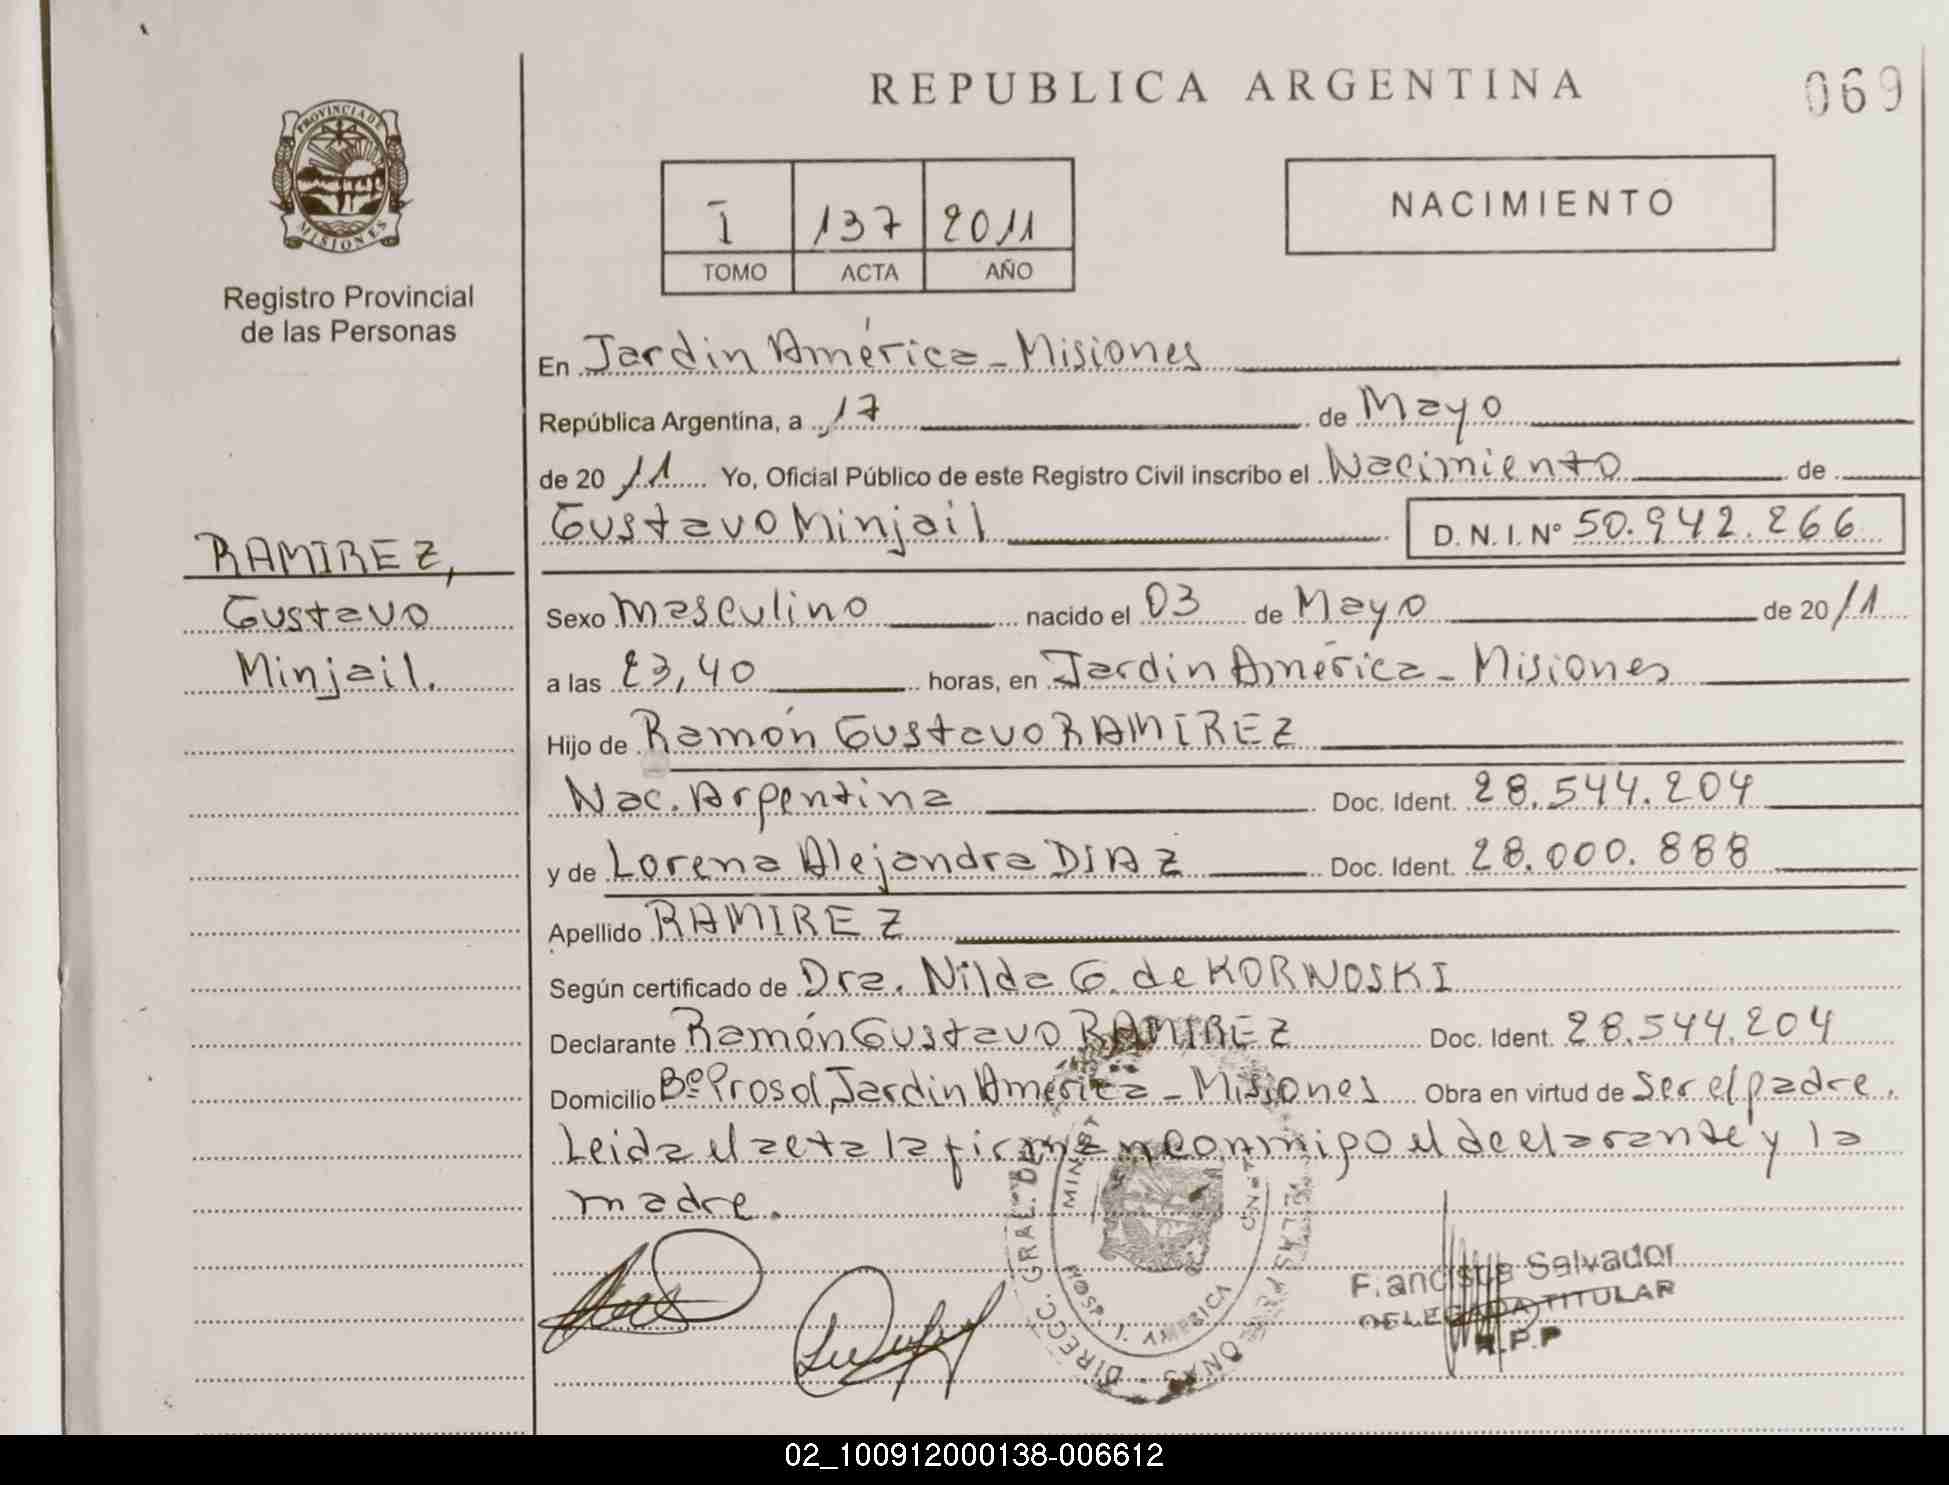 REPUBLICA ARGENTINA
069
PROVINCIA DE MISIONES
Registro Provincial
de las Personas
I 137 2011
TOMO ACTA AÑO
NACIMIENTO
En Jardin América - Misiones
República Argentina, a 17 de Mayo
de 20 11 Yo, Oficial Público de este Registro Civil inscribo el Nacimiento de
Gustavo Minjail D.N.I. Nº 50.942.266
RAMIREZ,
Gustavo
Minjail.
Sexo Masculino nacido el 03 de Mayo de 20 11
a las 23,40 horas, en Jardin América - Misiones
Hijo de Ramón Gustavo RAMIREZ
Nac. Argentina Doc. Ident. 28.544.204
y de Lorena Alejandra DIAZ Doc. Ident. 28.000.888
Apellido RAMIREZ
Según certificado de Dra. Nilda G. de KORNOSKI
Declarante Ramón Gustavo RAMIREZ Doc. Ident. 28.544.204
Domicilio Bº Prosol, Jardin América - Misiones Obra en virtud de ser el padre.
Leida el acta la firman conmigo el declarante y la
madre.
DIRECC. GRAL. DE
HOSP. J. AMERICA
Salvador
DELEGADA TITULAR
R.P.P
02_100912000138-006612